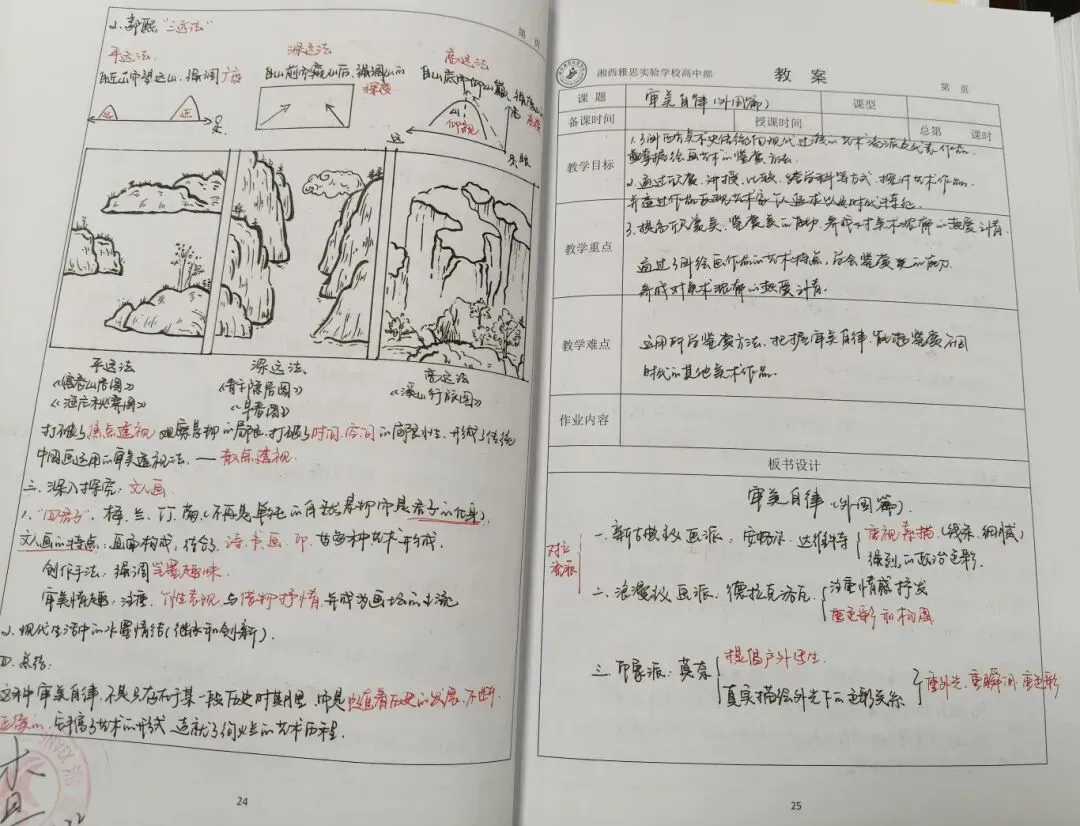 2.郭熙"三远法"
第 页
平远法 深远法 高远法
自近山而望远山,强调广度
自山前而窥山后,强调山的深度
自山底而仰山巅,强调山的高度
远 近
仰视
平远法 深远法 高远法
《富春山居图》 《青卞隐居图》 《溪山行旅图》
《渔庄秋霁图》 《早春图》
打破了焦点透视观察景物的局限,打破了时间、空间的局限性,形成了传统
中国画运用的审美透视法,—散点透视.
三、深入探究:文人画.
1."四君子",梅、兰、竹、菊,(不再是单纯的自然景物而是君子的化身).
文人画的特点:画面构成,结合了诗.书.画.印.等多种艺术形式.
创作手法,强调笔墨趣味.
审美情趣:注重,个性表现,与借物抒情,并成为画坛的主流
2.现代生活中的水墨情结(继承和创新).
四.总结:
这种审美自律,不是只存在于某一段历史时期里,而是随着历史的发展,不断
延续的,丰富了艺术的形式,造就了的艺术历程.
24
湘西雅思实验学校高中部
教 案
第 页
课 题 审美自律(外国篇) 课型
备课时间 授课时间 总第 课时
教学目标
1.了解西方美术史传统向现代过渡的艺术流派及代表作品.
并掌握绘画艺术的鉴赏方法.
2.通过欣赏、讲授、比较、跨学科等方式,探讨艺术作品.
并通过作品发现艺术家个人追求以及时代特征.
教学重点
3.提高欣赏美、鉴赏美的能力,养成对美术理解的热爱之情.
通过了解绘画作品的艺术特点,学会鉴赏美的能力.
养成对美术理解的热爱之情.
教学难点
运用所学鉴赏方法,把握审美自律,能够鉴赏不同
时代的其他美术作品.
作业内容
板书设计
审美自律(外国篇).
对立
一、新古典主义画派:安格尔、达维特
重视素描(线条、细腻)
强烈的政治色彩.
二、浪漫主义画派:德拉克洛瓦
注重情感抒发
重色彩和构图
三、印象派:莫奈
提倡户外写生.
真实描绘外光下的色彩关系
重外光、重瞬间、重色彩
25